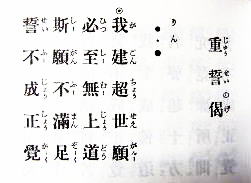 重誓偈
りん
我建超世願
必至無上道
斯願不滿足
誓不成正覺